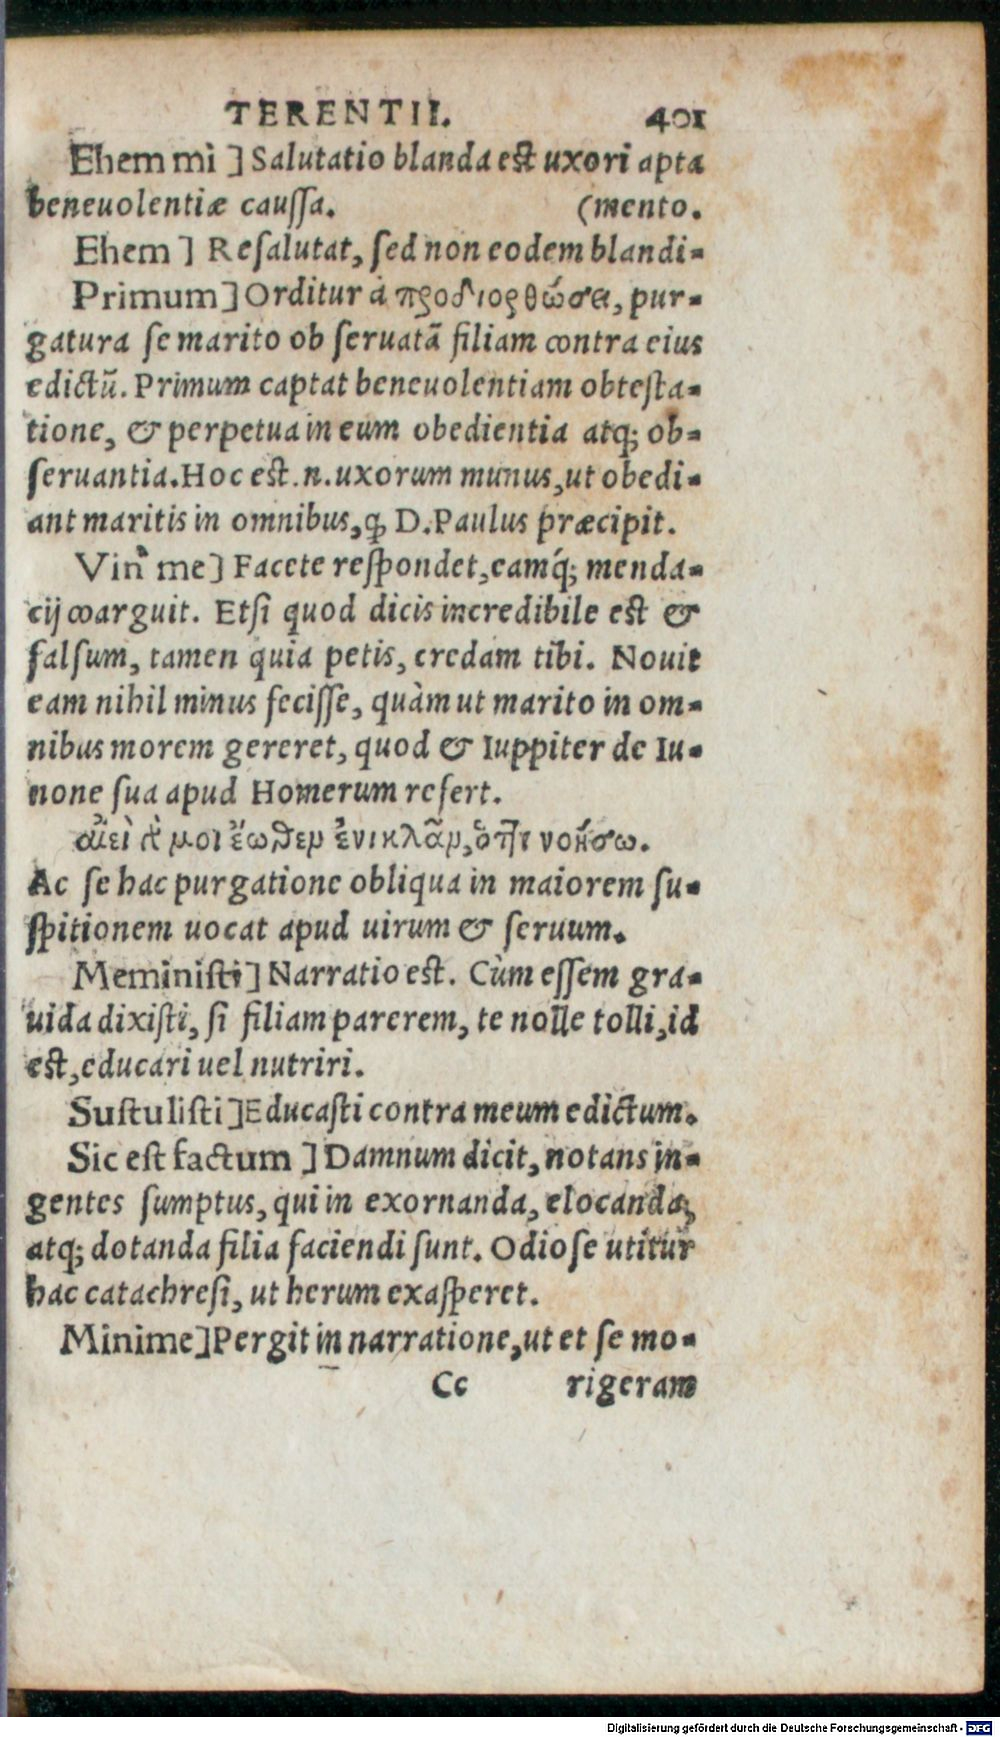 TERENTII. 401
Ehem mi ] Salutatio blanda est uxori apta
beneuolentiæ caussa. (mento.
Ehem ] Resalutat, sed non eodem blandi-
Primum ] Orditur à προδιορθώσει, pur-
gatura se marito ob seruatã filiam contra eius
edictũ. Primum captat beneuolentiam obtesta-
tione, & perpetua in eum obedientia atq; ob-
seruantia. Hoc est.n.uxorum munus, ut obedi-
ant maritis in omnibus, ꝙ D. Paulus præcipit.
Vin' me ] Facete respondet, eamq́; menda-
cij coarguit. Etsi quod dicis incredibile est &
falsum, tamen quia petis, credam tibi. Nouit
eam nihil minus fecisse, quàm ut marito in om-
nibus morem gereret, quod & Iuppiter de Iu-
none sua apud Homerum refert.
αἰεὶ γὰρ μοι ἔωθεν ἐνικλᾶν, ὅττι νοήσω.
Ac se hac purgatione obliqua in maiorem su-
spitionem uocat apud uirum & seruum.
Meministi ] Narratio est. Cùm essem gra-
uida dixisti, si filiam parerem, te nolle tolli, id
est, educari uel nutriri.
Sustulisti ] Educasti contra meum edictum.
Sic est factum ] Damnum dicit, notans in-
gentes sumptus, qui in exornanda, elocanda,
atq; dotanda filia faciendi sunt. Odiose utitur
hac catachresi, ut herum exasperet.
Minime ] Pergit in narratione, ut et se mo-
Cc rigeram
Digitalisierung gefördert durch die Deutsche Forschungsgemeinschaft - DFG